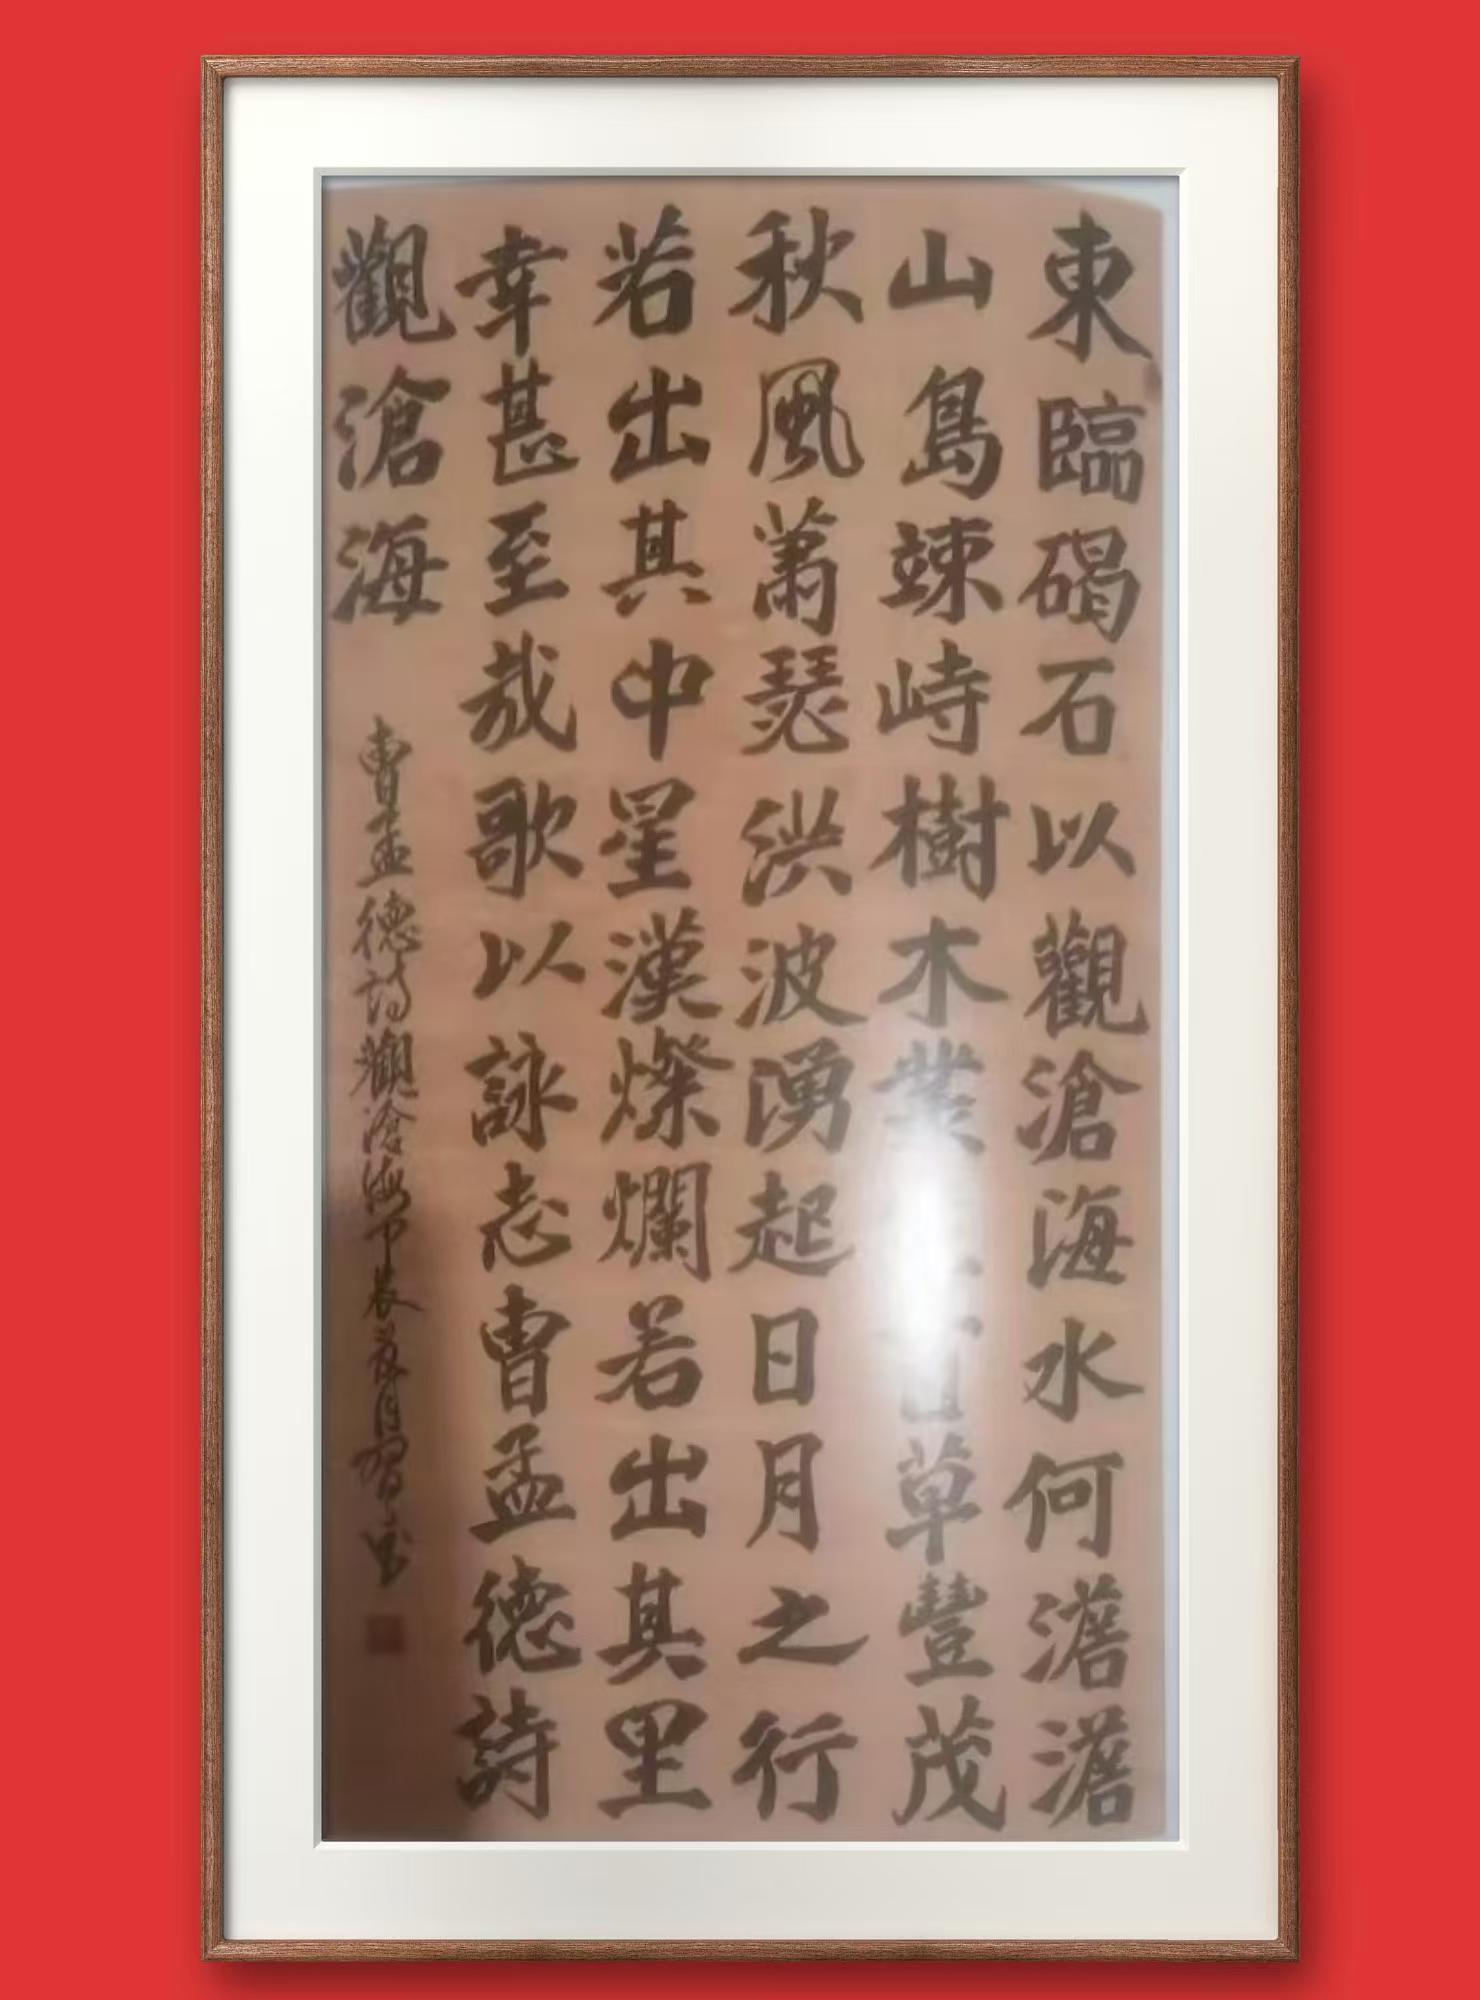 東臨碣石以觀滄海水何澹澹
山島竦峙樹木百草豐茂
秋風蕭瑟洪波湧起日月之行
若出其中星漢燦爛若出其里
幸甚至哉歌以詠志曹孟德詩
觀滄海
曹孟德詩觀滄海甲辰月書